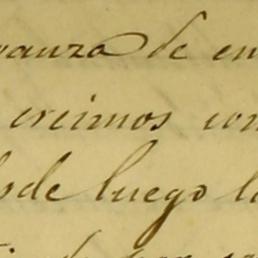 vanza de en
creimos con
sde luego l